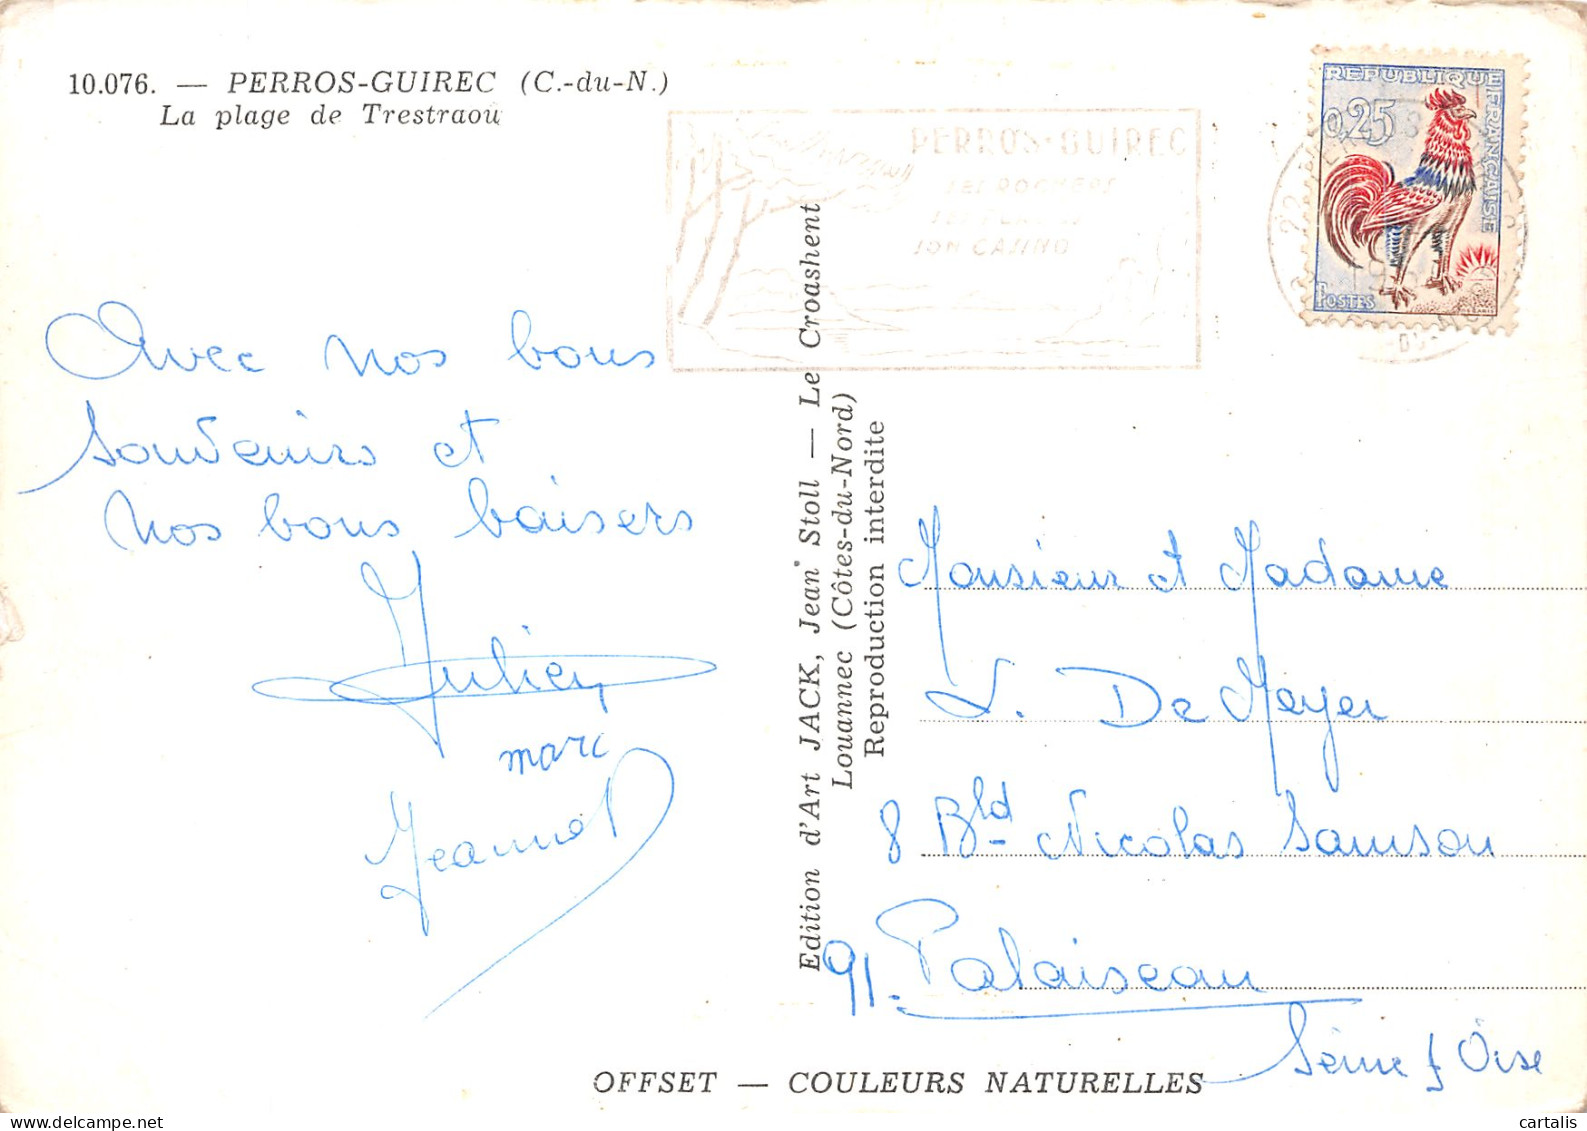 10.076. — PERROS-GUIREC (C.-du-N.)
La plage de Trestraou
PERROS-GUIREC
SES ROCHERS
SON CASINO
REPUBLIQUE FRANÇAISE
0,25
POSTES
Avec nos bons
souvenirs et
nos bons baisers
Julien
marc
Jeannot
Edition d'Art JACK, Jean Stoll — Le Croashent
Louannec (Côtes-du-Nord)
Reproduction interdite
Monsieur et Madame
L. De Meyer
8 Bld Nicolas Samson
91. Palaiseau
Seine & Oise
OFFSET — COULEURS NATURELLES
cartalis